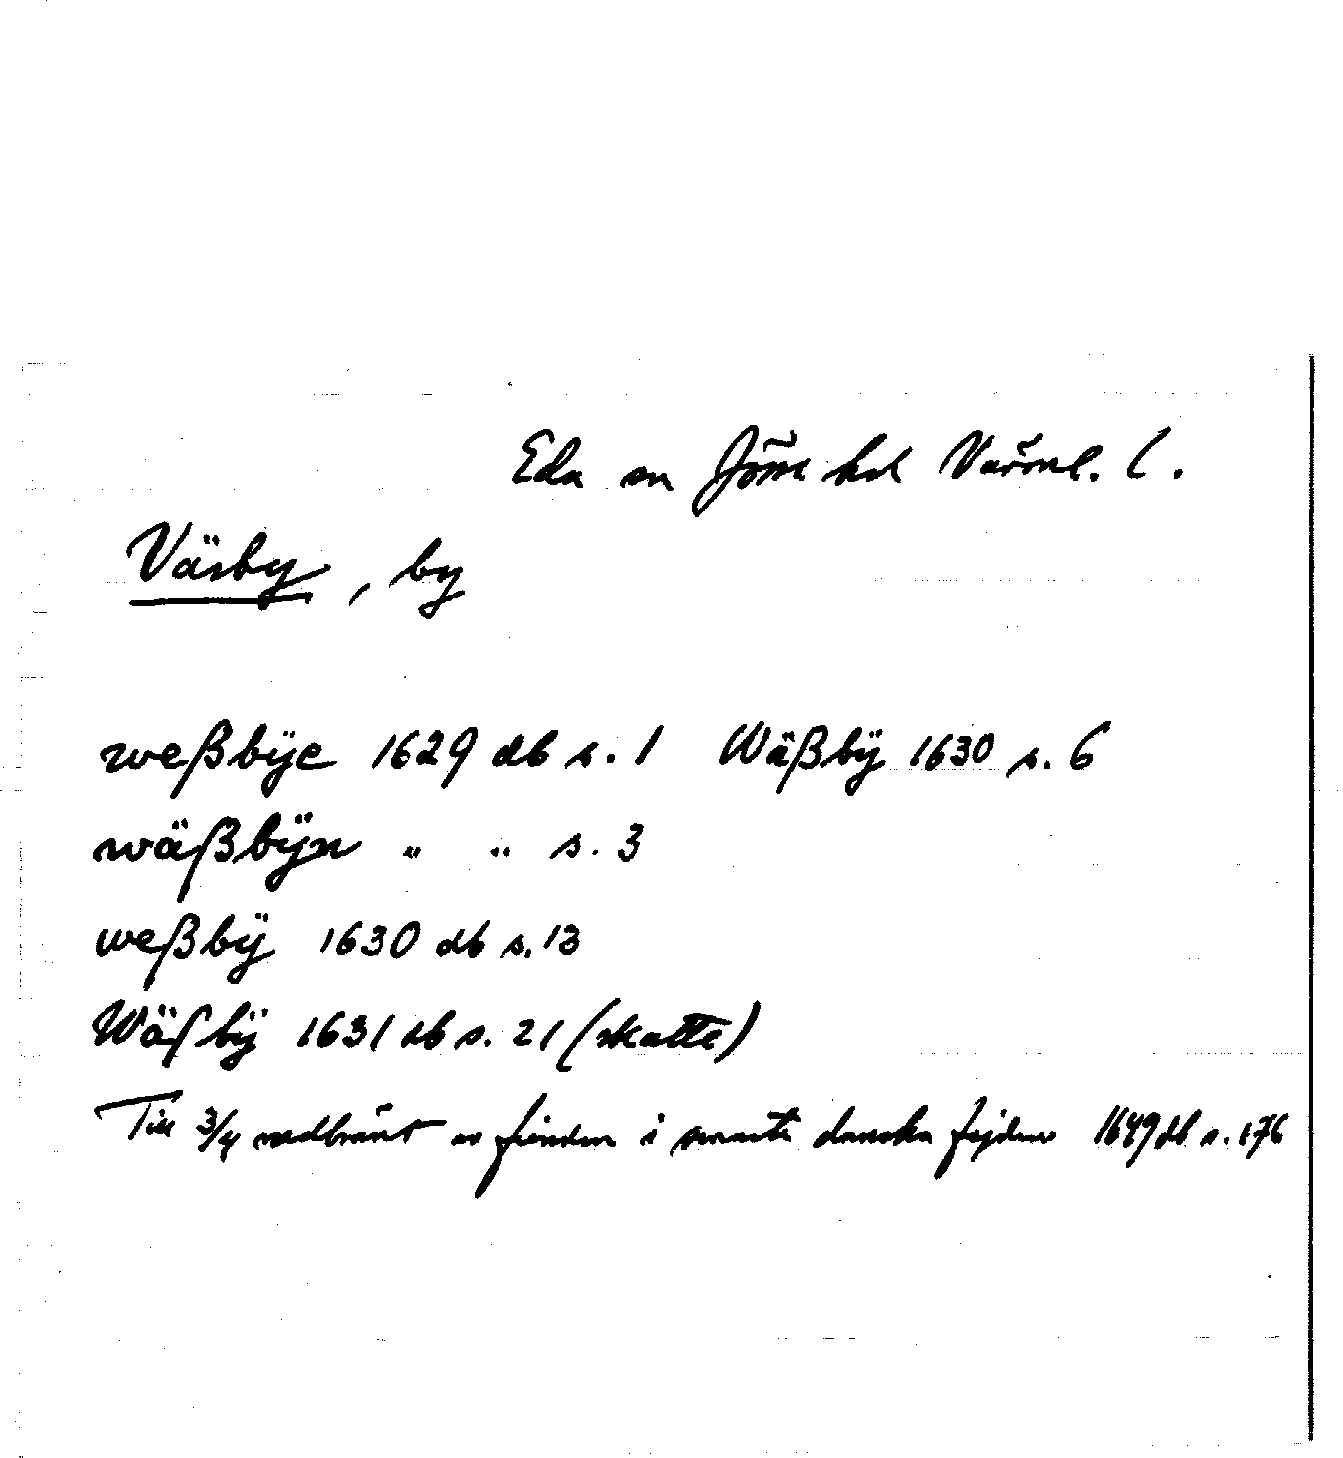 Eda sn Jösse hd Värml. l.
Väsby, by
weßbÿe 1629 db s. 1 Wäßbÿ 1630 s. 6
wäßbÿn " " s. 3
weßbÿ 1630 db s. 13
Wäſbÿ 1631 db s. 21 (skatte)
Till 3/4 nedbränt av fienden i senaste danska fejden 1649 db s. 176